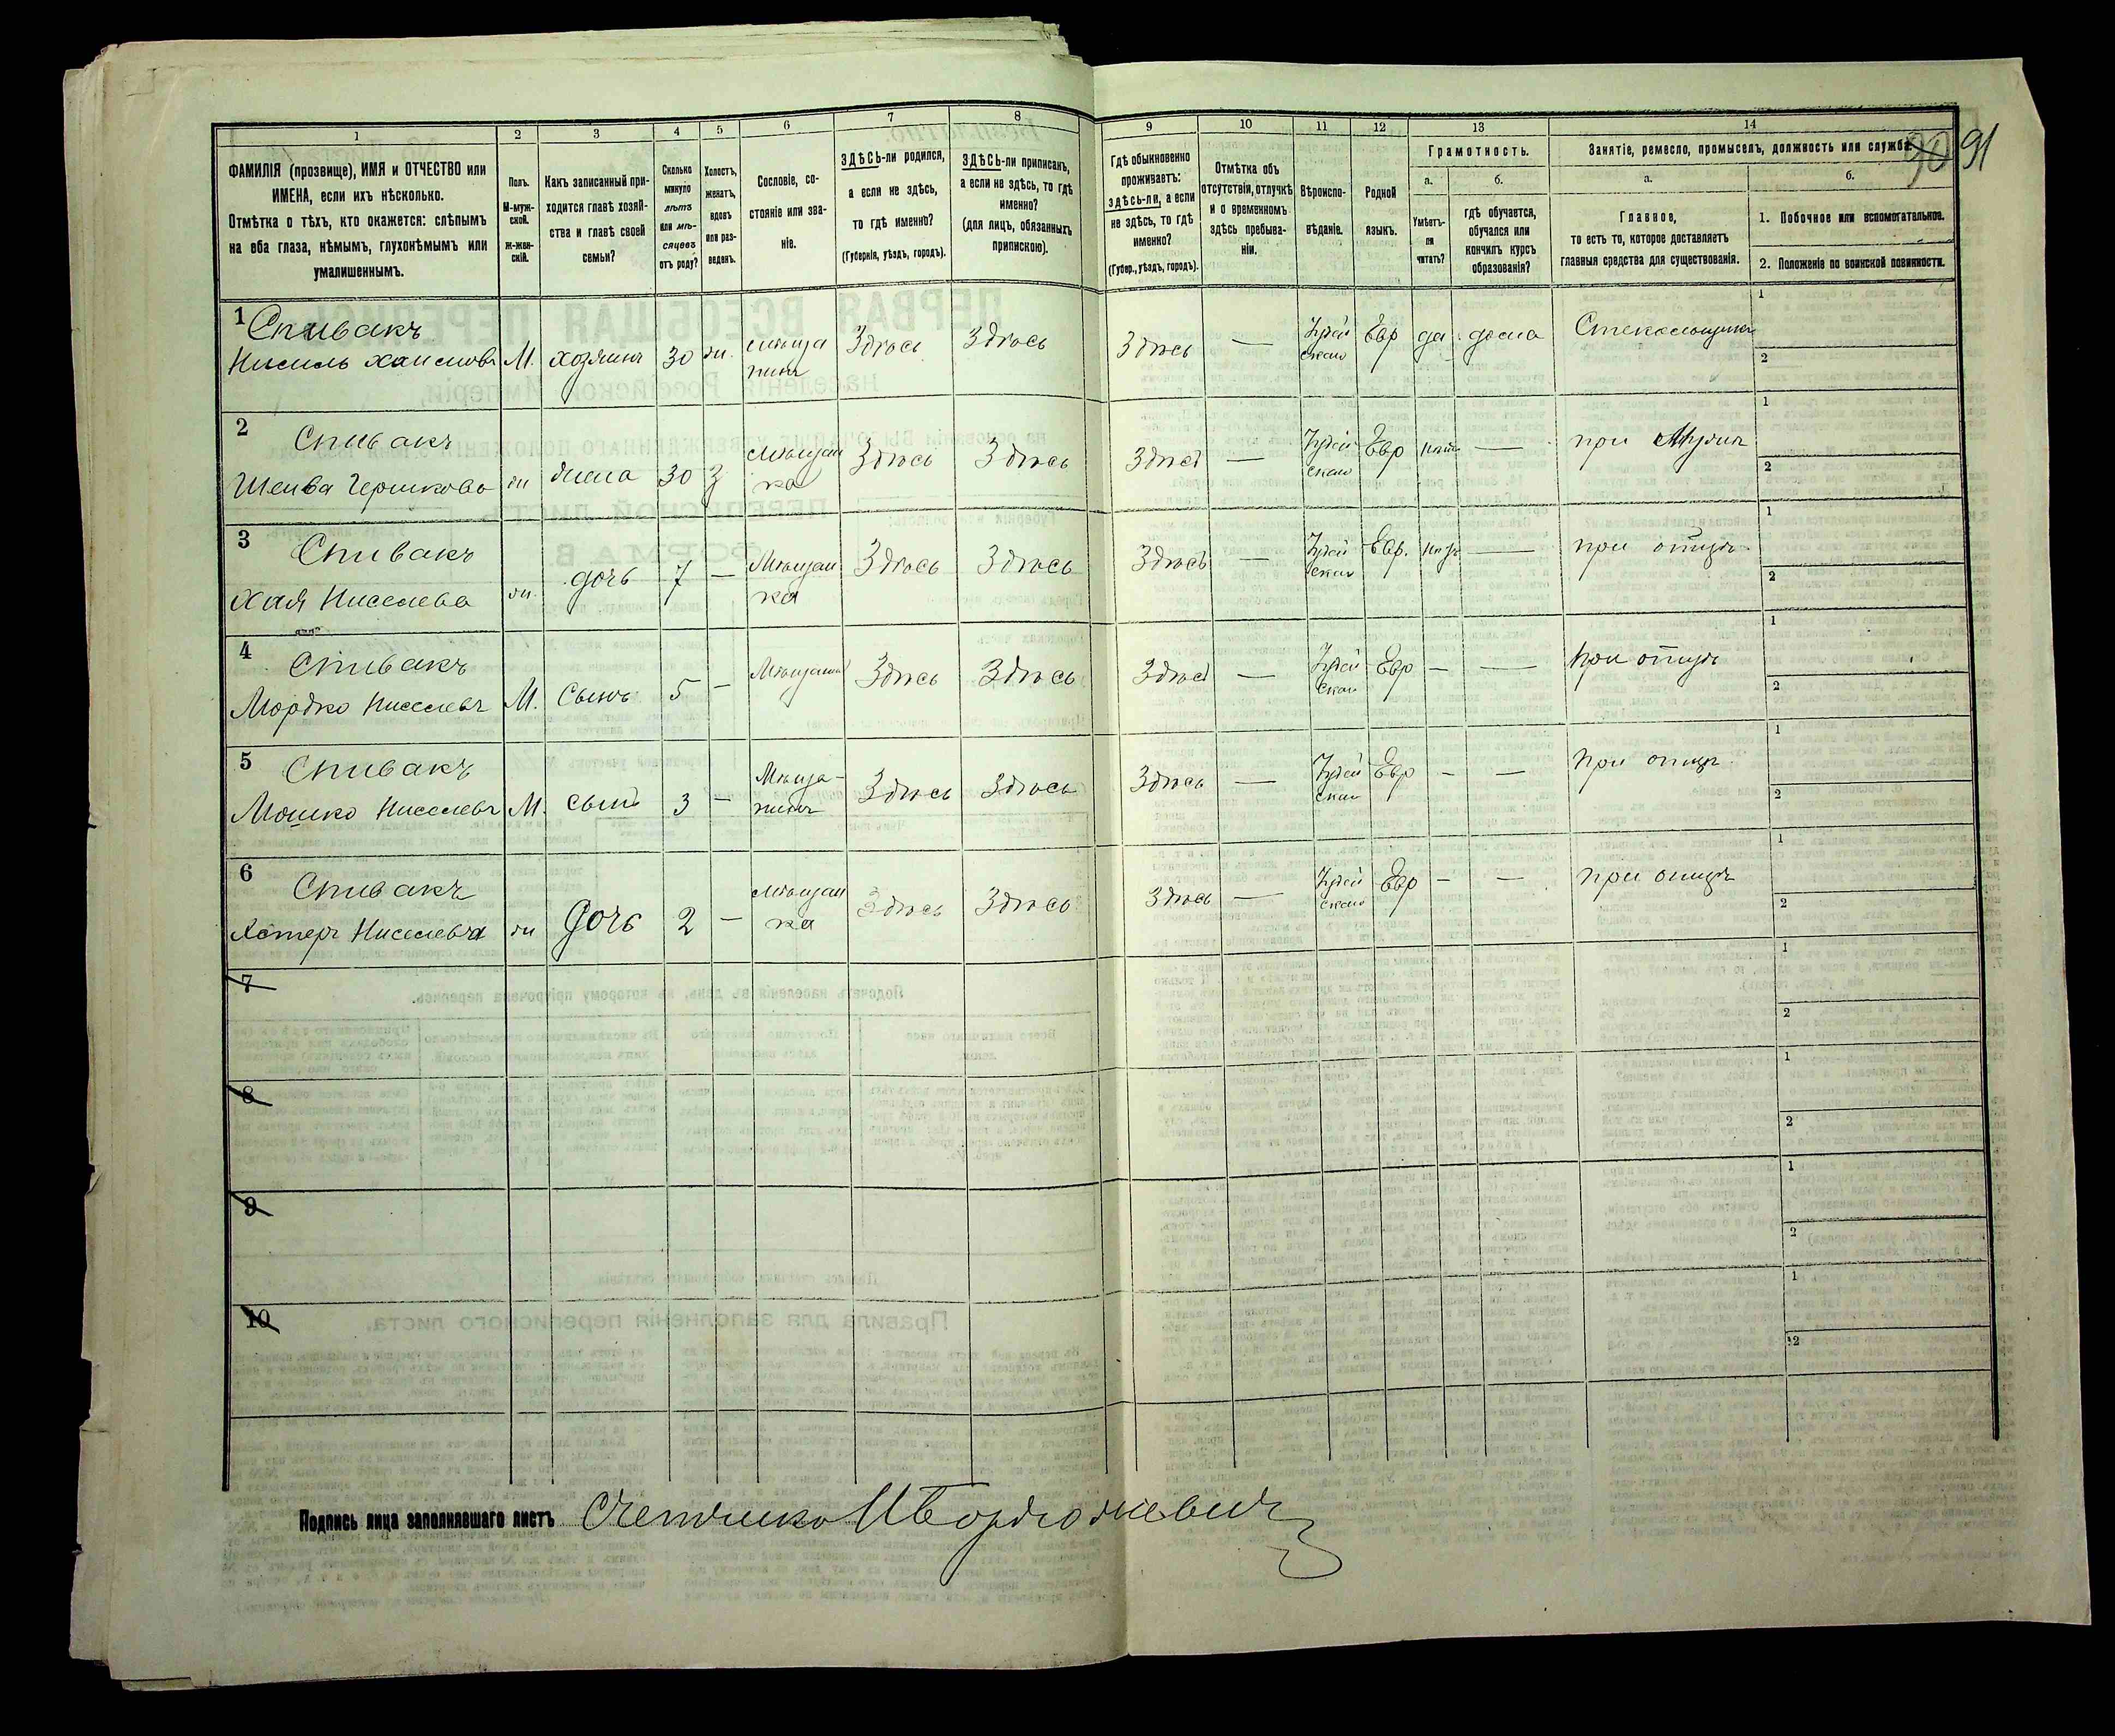 1 2 3 4 5 6 7 8 9 10 11 12 13 14
90 91
ФАМИЛІЯ (прозвище), ИМЯ и ОТЧЕСТВО или
ИМЕНА, если ихъ нѣсколько.
Отмѣтка о тѣхъ, кто окажется: слѣпымъ
на оба глаза, нѣмымъ, глухонѣмымъ или
умалишеннымъ.
Полъ.
М-муж-
ской.
Ж-жен-
скій.
Какъ записанный при-
ходится главѣ хозяй-
ства и главѣ своей
семьи?
Сколько
минуло
лѣтъ
или мѣ-
сяцевъ
отъ роду?
Холостъ,
женатъ,
вдовъ
или раз-
веденъ.
Сословіе, со-
стояніе или зва-
ніе.
ЗДѢСЬ-ли родился,
а если не здѣсь,
то гдѣ именно?
(Губернія, уѣздъ, городъ).
ЗДѢСЬ-ли приписанъ,
а если не здѣсь, то гдѣ
именно?
(для лицъ, обязанныхъ
припискою).
Гдѣ обыкновенно
проживаетъ:
здѣсь-ли, а если
не здѣсь, то гдѣ
именно?
(Губер., уѣздъ, городъ).
Отмѣтка объ
отсутствіи, отлучкѣ
и о временномъ
здѣсь пребыва-
ніи.
Вѣроиспо-
вѣданіе.
Родной
языкъ.
Грамотность.
а.
Умѣетъ-
ли
читать?
б.
гдѣ обучается,
обучался или
кончилъ курсъ
образованія?
Занятіе, ремесло, промыселъ, должность или служба.
а.
Главное,
то есть то, которое доставляетъ
главныя средства для существованія.
б.
1. Побочное или вспомогательное.
2. Положеніе по воинской повинности.
1 Спивакъ
Нисиль Хаимовъ М. хозяинъ 30 ж. мѣща
нинъ Здѣсь Здѣсь Здѣсь — Іудей
ское Евр да дома Стекольщикъ 1
2
2 Спивакъ
Шейва Гершкова ж жена 30 з мѣщан
ка Здѣсь Здѣсь Здѣсь — Іудей
ское Евр нѣтъ — при Мужѣ 1
2
3 Спивакъ
Хая Нисилева ж. дочь 7 — Мѣщан
ка Здѣсь Здѣсь Здѣсь — Іудей
ское Евр. нѣтъ — при отцѣ 1
2
4 Спивакъ
Мордко Нисилевъ М. Сынъ 5 — Мѣщанин Здѣсь Здѣсь Здѣсь — Іудей
ское Евр — — при отцѣ 1
2
5 Спивакъ
Мошко Нисилевъ М. сынъ 3 — Мѣща-
нинъ Здѣсь Здѣсь Здѣсь — Іудей
ское Евр — — при отцѣ 1
2
6 Спивакъ
Хстеръ Нисилева ж дочь 2 — мѣщан
ка Здѣсь Здѣсь Здѣсь — Іудей
ское Евр — — при отцѣ 1
2
7 1
2
8 1
2
9 1
2
10 1
2
Подпись лица заполнявшаго листъ